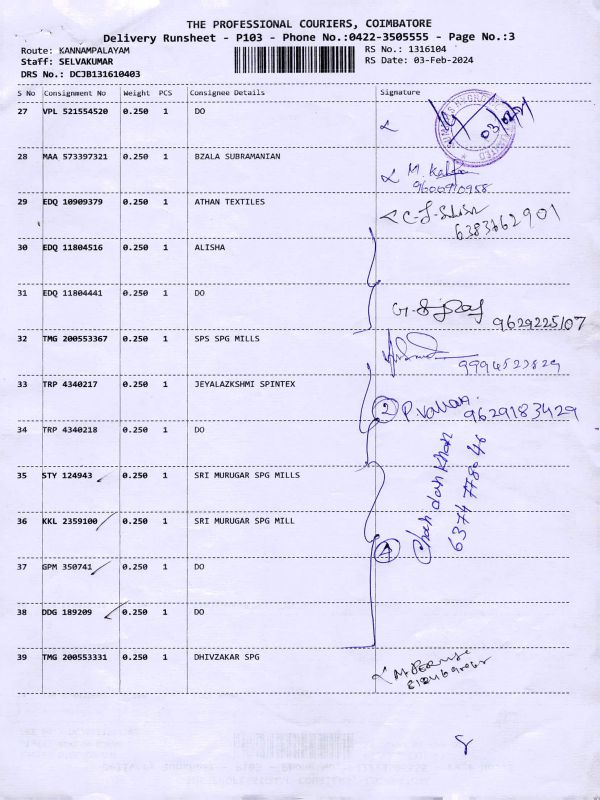 THE PROFESSIONAL COURIERS, COIMBATORE
Delivery Runsheet - P103 - Phone No.:0422-3505555 - Page No.:3
Route: KANNAMPALAYAM RS No.: 1316104
Staff: SELVAKUMAR RS Date: 03-Feb-2024
DRS No.: DCJB131610403
S No Consignment No Weight PCS Consignee Details Signature
27 VPL 521554520 0.250 1 DO
03/02/24
28 MAA 573397321 0.250 1 BZALA SUBRAMANIAN M.
9600910958
29 EDQ 10909379 0.250 1 ATHAN TEXTILES
6383762901
30 EDQ 11804516 0.250 1 ALISHA
31 EDQ 11804441 0.250 1 DO
9629225107
32 TMG 200553367 0.250 1 SPS SPG MILLS
33 TRP 4340217 0.250 1 JEYALAZKSHMI SPINTEX 2
9629183429
34 TRP 4340218 0.250 1 DO
35 STY 124943 0.250 1 SRI MURUGAR SPG MILLS
36 KKL 2359100 0.250 1 SRI MURUGAR SPG MILL 4
Khan
6374778046
37 GPM 350741 0.250 1 DO
38 DDG 189209 0.250 1 DO
39 TMG 200553331 0.250 1 DHIVZAKAR SPG
8